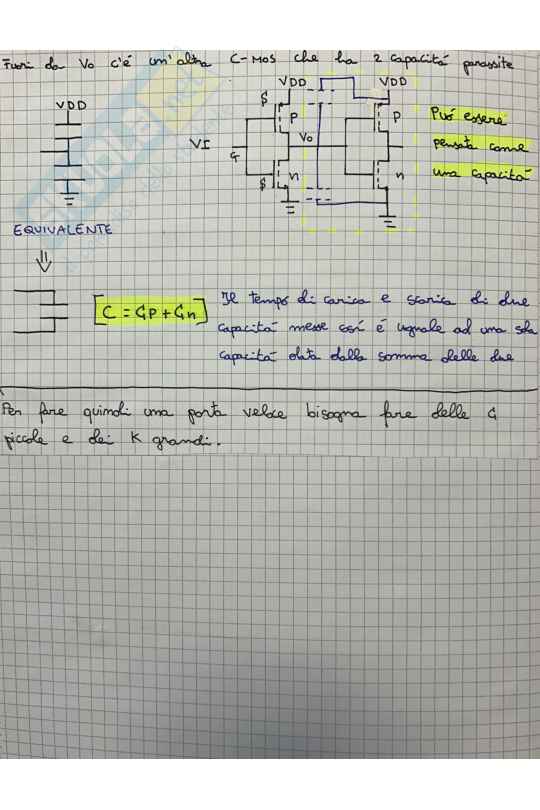 Fuori da Vo c'é un'altra C-MOS che ha 2 capacitá parassite
VDD VDD
VDD
S
P P Puó essere
VI Vo pensata come
G
n n una capacitá
S
EQUIVALENTE
[C = Gp + Gn] Il tempo di carica e scarica di due
capacitá messe cosí é uguale ad una sola
capacitá data dalla somma delle due
Per fare quindi una porta veloce bisogna fare delle G
piccole e dei K grandi.